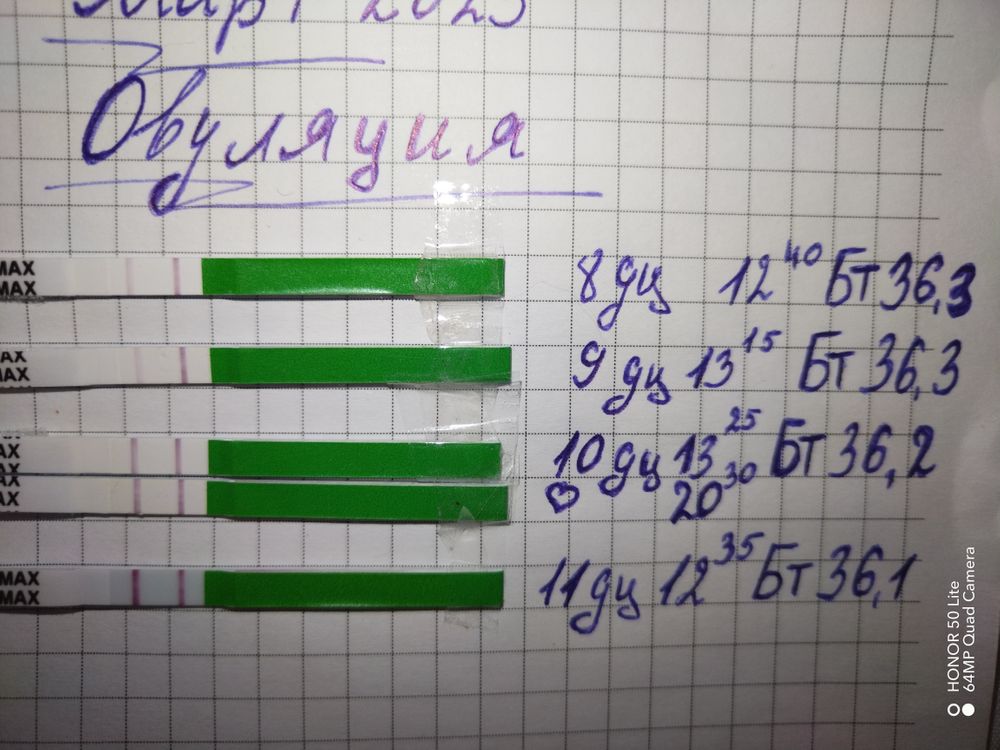 Март 2023
Овуляция
MAX
MAX
8 дц 12 40 Бт 36,3
MAX
MAX
9 дц 13 15 Бт 36,3
MAX
10 дц 13 25 Бт 36,2
MAX
20 30
MAX
MAX
11 дц 12 35 Бт 36,1
HONOR 50 Lite
64MP Quad Camera